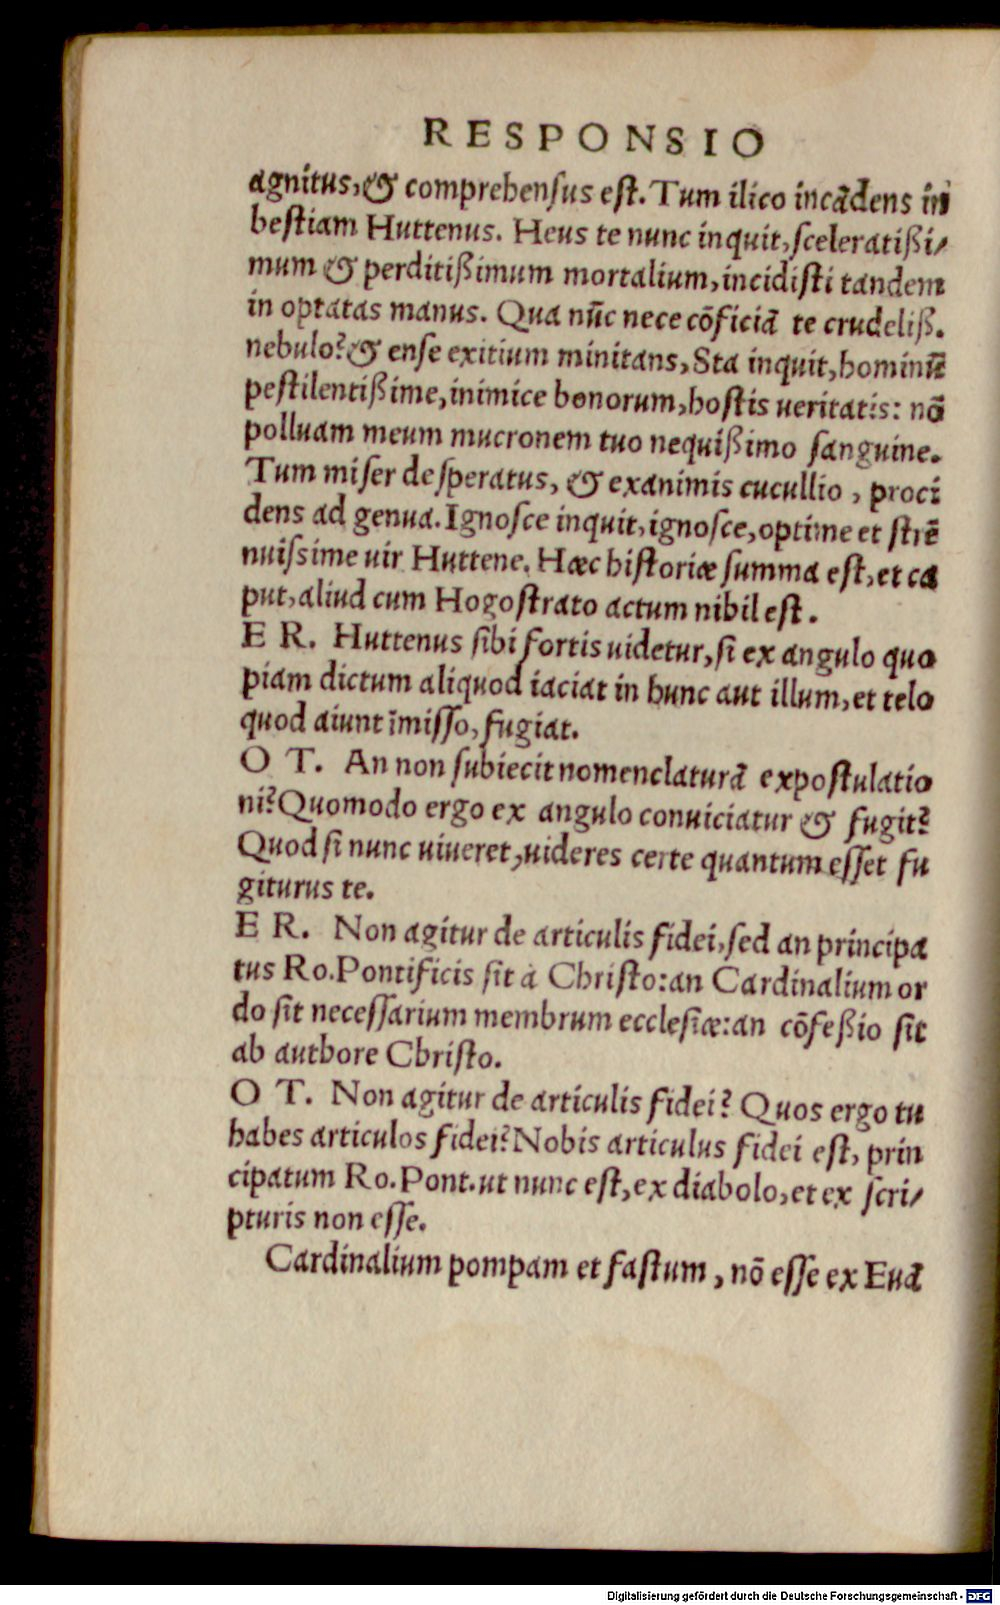 RESPONSIO
agnitus, & comprehensus est. Tum ilico incādens in
bestiam Huttenus. Heus te nunc inquit, sceleratißi-
mum & perditißimum mortalium, incidisti tandem
in optatas manus. Qua nūc nece cōficiā te crudeliß.
nebulo? & ense exitium minitans, Sta inquit, hominū
pestilentißime, inimice bonorum, hostis ueritatis: nō
polluam meum mucronem tuo nequißimo sanguine.
Tum miser desperatus, & exanimis cucullio, proci
dens ad genua. Ignosce inquit, ignosce, optime et strē
nuissime uir Huttene. Hæc historiæ summa est, et ca
put, aliud cum Hogostrato actum nihil est.
E R. Huttenus sibi fortis uidetur, si ex angulo quo
piam dictum aliquod iaciat in hunc aut illum, et telo
quod aiunt īmisso, fugiat.
O T. An non subiecit nomenclaturā expostulatio
ni? Quomodo ergo ex angulo conuiciatur & fugit?
Quod si nunc uiueret, uideres certe quantum esset fu
giturus te.
E R. Non agitur de articulis fidei, sed an principa
tus Ro. Pontificis sit à Christo: an Cardinalium or
do sit necessarium membrum ecclesiæ: an cōfeßio sit
ab authore Christo.
O T. Non agitur de articulis fidei? Quos ergo tu
habes articulos fidei? Nobis articulus fidei est, prin
cipatum Ro. Pont. ut nunc est, ex diabolo, et ex scri-
pturis non esse.
Cardinalium pompam et fastum, nō esse ex Euā
Digitalisierung gefördert durch die Deutsche Forschungsgemeinschaft - DFG